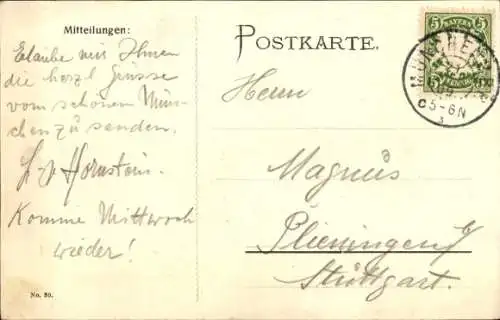 Mitteilungen:
Erlaube mir Ihnen
die herzl Grüsse
vom schönen Mün-
chen zu senden.
Hornstein.
Komme Mittwoch
wieder!
No. 80.
POSTKARTE.
Herrn
Magnus
Plieningen
Stuttgart.
5 BAYERN 5
MÜNCHEN
5-6N